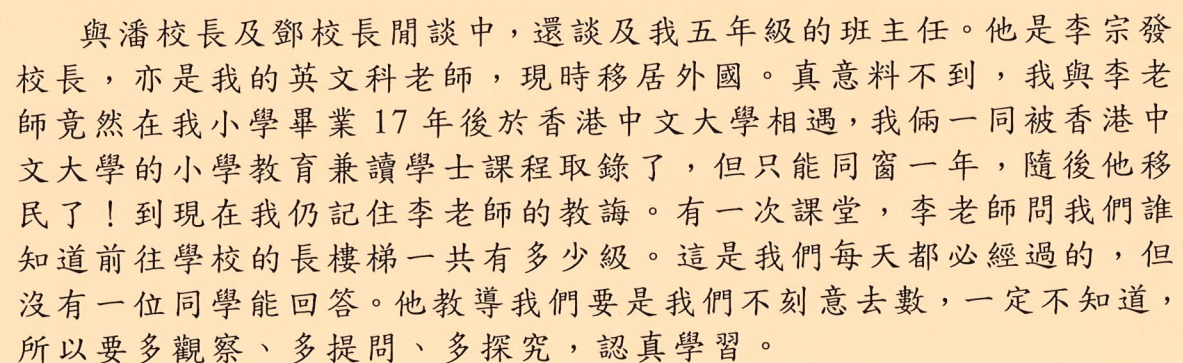 與潘校長及鄧校長閒談中，還談及我五年級的班主任。他是李宗發
校長，亦是我的英文科老師，現時移居外國。真意料不到，我與李老
師竟然在我小學畢業 17 年後於香港中文大學相遇，我倆一同被香港中
文大學的小學教育兼讀學士課程取錄了，但只能同窗一年，隨後他移
民了！到現在我仍記住李老師的教誨。有一次課堂，李老師問我們誰
知道前往學校的長樓梯一共有多少級。這是我們每天都必經過的，但
沒有一位同學能回答。他教導我們要是我們不刻意去數，一定不知道，
所以要多觀察、多提問、多探究，認真學習。